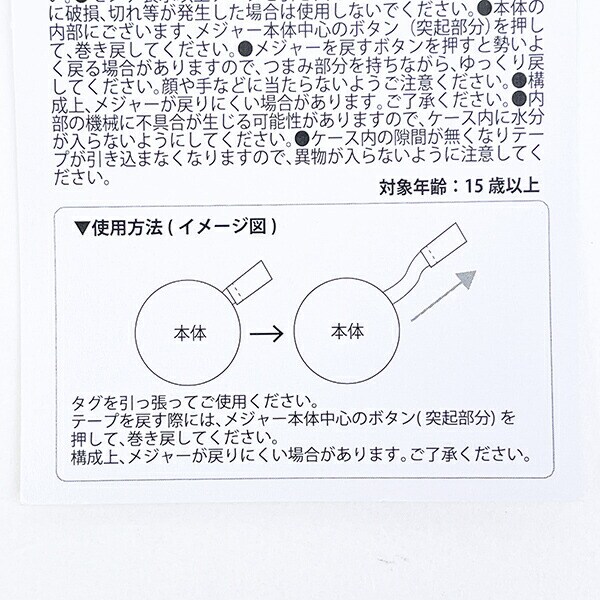 に破損、切れ等が発生した場合は使用しないでください。●本体の
内部にございます、メジャー本体中心のボタン（突起部分）を押し
て、巻き戻してください。●メジャーを戻すボタンを押すと勢いよ
く戻る場合がありますので、つまみ部分を持ちながら、ゆっくり戻
してください。顔や手などに当たらないようご注意ください。●構
成上、メジャーが戻りにくい場合があります。ご了承ください。●内
部の機械に不具合が生じる可能性がありますので、ケース内に水分
が入らないようにしてください。●ケース内の隙間が無くなりテー
プが引き込まなくなりますので、異物が入らないように注意してく
ださい。
対象年齢：15 歳以上
▼使用方法 ( イメージ図 )
本体 → 本体
タグを引っ張ってご使用ください。
テープを戻す際には、メジャー本体中心のボタン( 突起部分) を
押して、巻き戻してください。
構成上、メジャーが戻りにくい場合があります。ご了承ください。